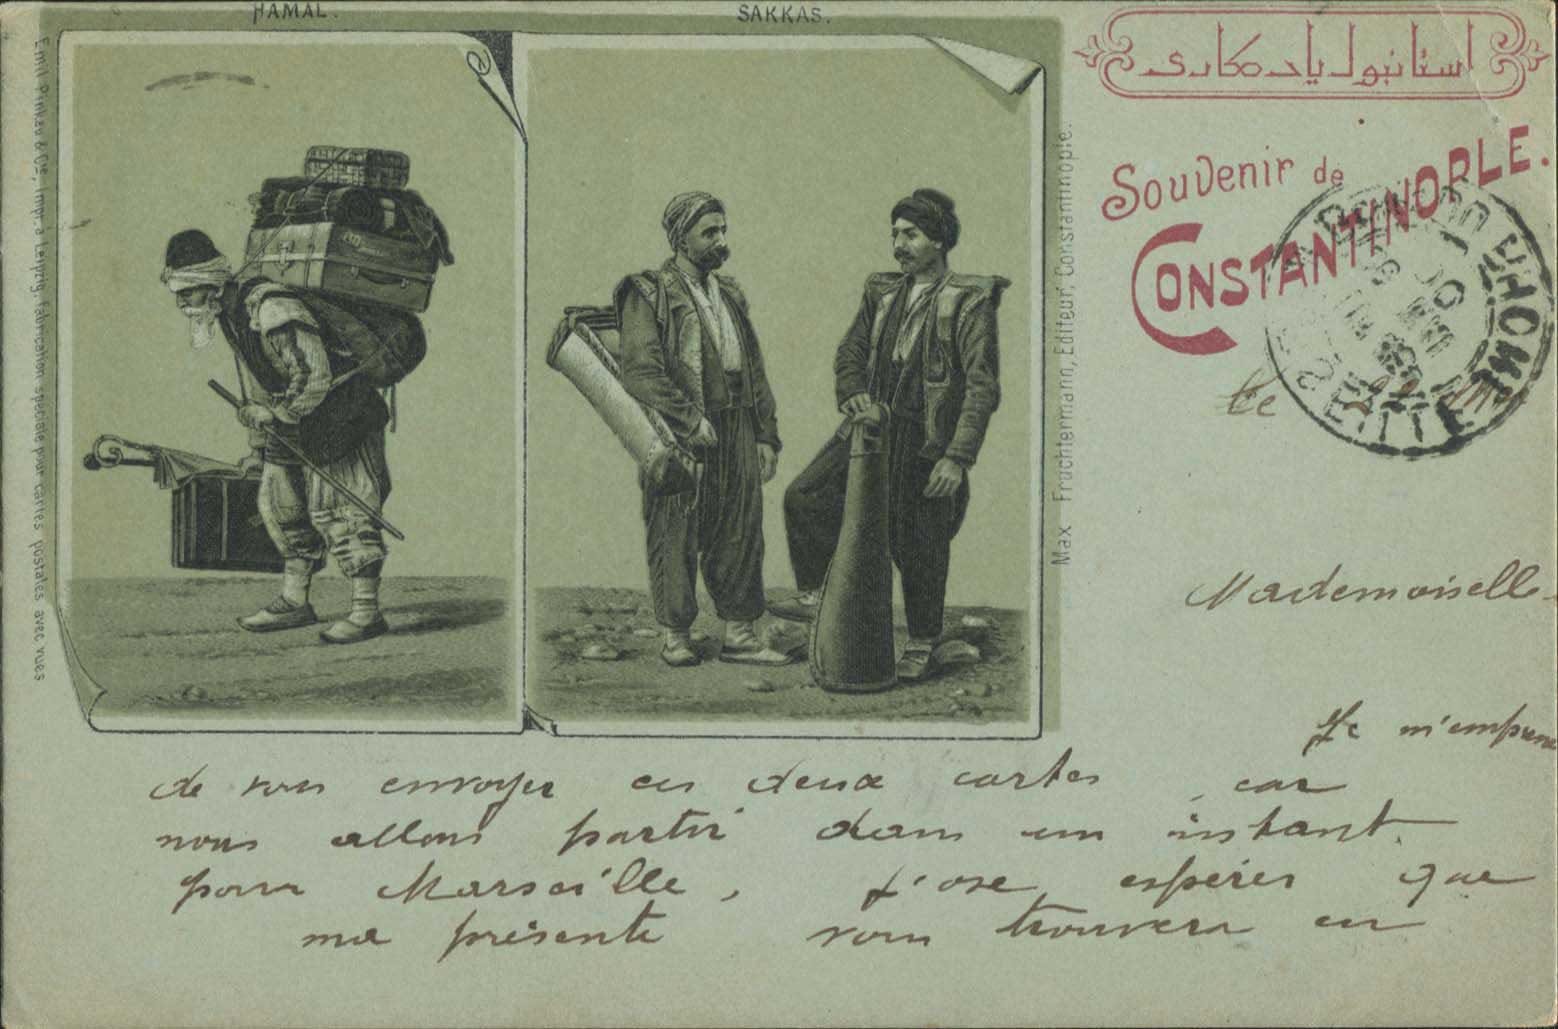 HAMAL.
SAKKAS.
Emil Pinkau & Cie, Impr. à Leipzig, fabrication spéciale pour cartes postales avec vues
Max Fruchtermann, Editeur, Constantinople.
استانبول يادكارى
Souvenir de
CONSTANTINOPLE.
Le 22
Mademoiselle
Je m'empresse
de vous envoyer ces deux cartes, car
nous allons partir dans un instant
pour Marseille, j'ose espérer que
ma présente vous trouvera en